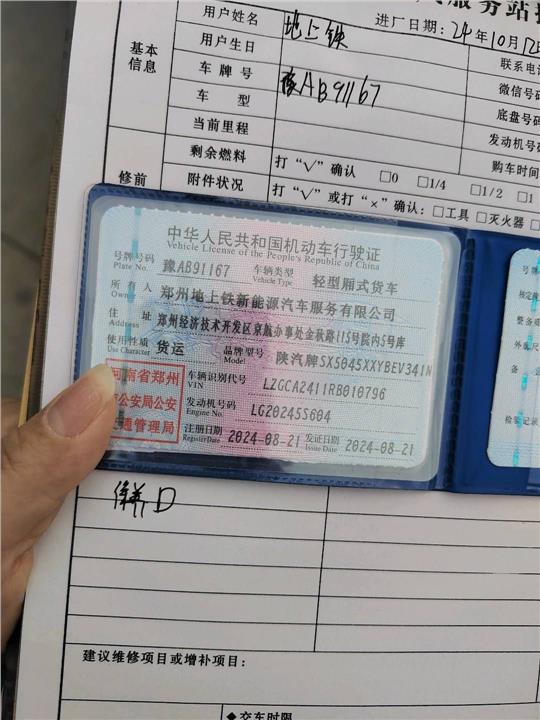 服务站接
用户姓名 地上铁 进厂日期：24年10月12日
用户生日 联系电话
基本信息
车牌号 豫AB91167 微信号码
车型 底盘号码
当前里程 发动机号码
剩余燃料 打“√”确认 □0 □1/4 □1/2 □1 购车时间
修前
附件状况 打“√”或打“×”确认：□工具 □灭火器
中华人民共和国机动车行驶证
Vehicle License of the People's Republic of China
号牌号码 Plate No. 豫AB91167 车辆类型 Vehicle Type 轻型厢式货车
所有人 Owner 郑州地上铁新能源汽车服务有限公司
住址 Address 郑州经济技术开发区京航办事处金秋路115号院内5号库
使用性质 Use Character 货运 品牌型号 Model 陕汽牌SX5045XXYBEV341N
河南省郑州市公安局公安交通管理局
车辆识别代号 VIN LZGCA2411RB010796
发动机号码 Engine No. LG20245S604
注册日期 Register Date 2024-08-21 发证日期 Issue Date 2024-08-21
核定
整备质
外廓尺
备
检验记录
保养D
建议维修项目或增补项目：
◆交车时限